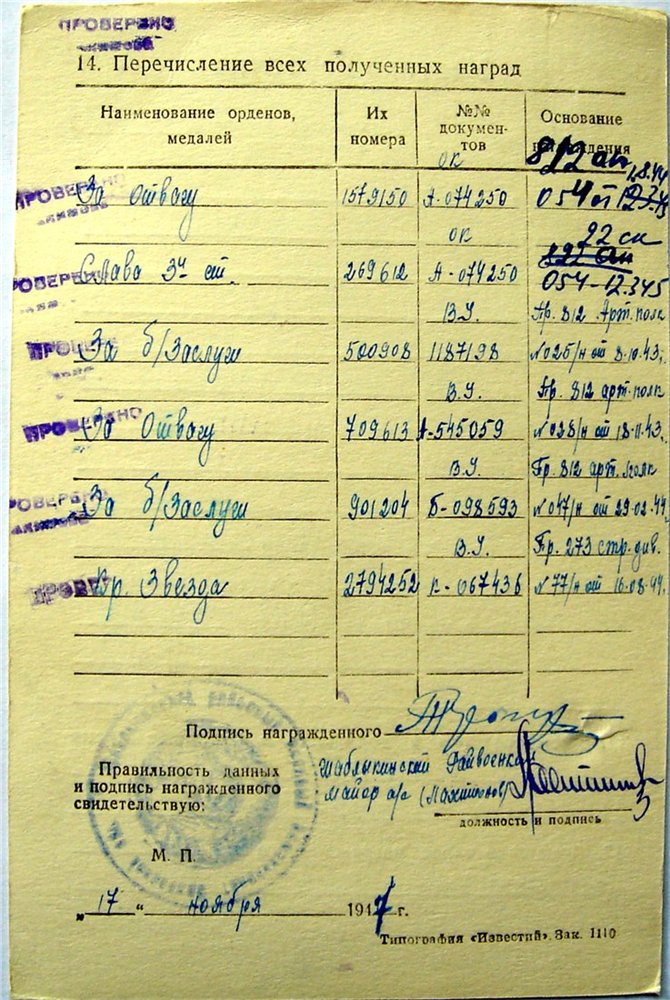 ПРОВЕРЕНО
14. Перечисление всех полученных наград
Наименование орденов, медалей
Их номера
№№ документов
Основание награждения
ОК 812 ап 1.8.44
ПРОВЕРЕНО За Отвагу 1579150 А-074250 054 от
ОК 22 ск
812 ап
ПРОВЕРЕНО Слава 3й ст. 269612 А-074250 054-12.345
В.У. Пр. 812 Арт. полк
За б/Заслуги 500908 1187198 №025/н от 8.10.43.
В.У. Пр. 812 арт. полк
ПРОВЕРЕНО За Отвагу 709613 А-545059 №028/н от 18.11.43.
В.У. Пр. 812 арт. полк
ПРОВЕРЕНО За б/Заслуги 901204 Б-098593 №047/н от 29.02.44
В.У. Пр. 273 стр. див.
Кр. Звезда 2794252 К-067436 №77/н от 16.08.44.
Подпись награжденного
Правильность данных и подпись награжденного свидетельствую:
Шаблыкинский Райвоенком
майор а/с
должность и подпись
М. П.
„17" ноября 1947 г.
Типография «Известий». Зак. 1110